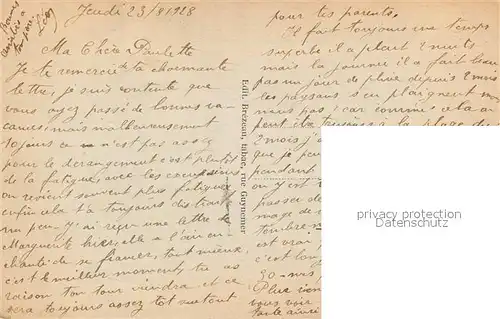 Jeudi 23/8 1928
Ma Chère Paulette
Je te remercie de ta charmante
lettre, je suis contente que
vous ayez passé de bonnes va-
cances mais malheureusement
toujours ce n'est pas assez
pour le derangement c'est plutôt
de la fatigue, avec les
on revient souvent plus fatigué
enfin cela t'a toujours distrait
un peu. J'ai reçu une lettre de
Marguerite hier, elle a l'air en
chanté de se fiancer, tant mieux,
c'est le meilleur moment, tu as
raison ton tour viendra et ce
sera toujours assez tôt surtout
Edit. Brézeau, tabac, rue Guynemer
pour tes parents.
Il fait toujours un temps
superbe il a plu 2 nuits
mais la journée il a fait beau
pas un jour de pluie depuis 2 mois
les paysans s'en plaignent
nous pas! car comme cela
peut être la plage
2 mois j'
que je
pendant
on y est
passer
mage de
tembre
est vrai
c'est long
30
Plus
vous voir
faite ainsi
privacy protection
watermark